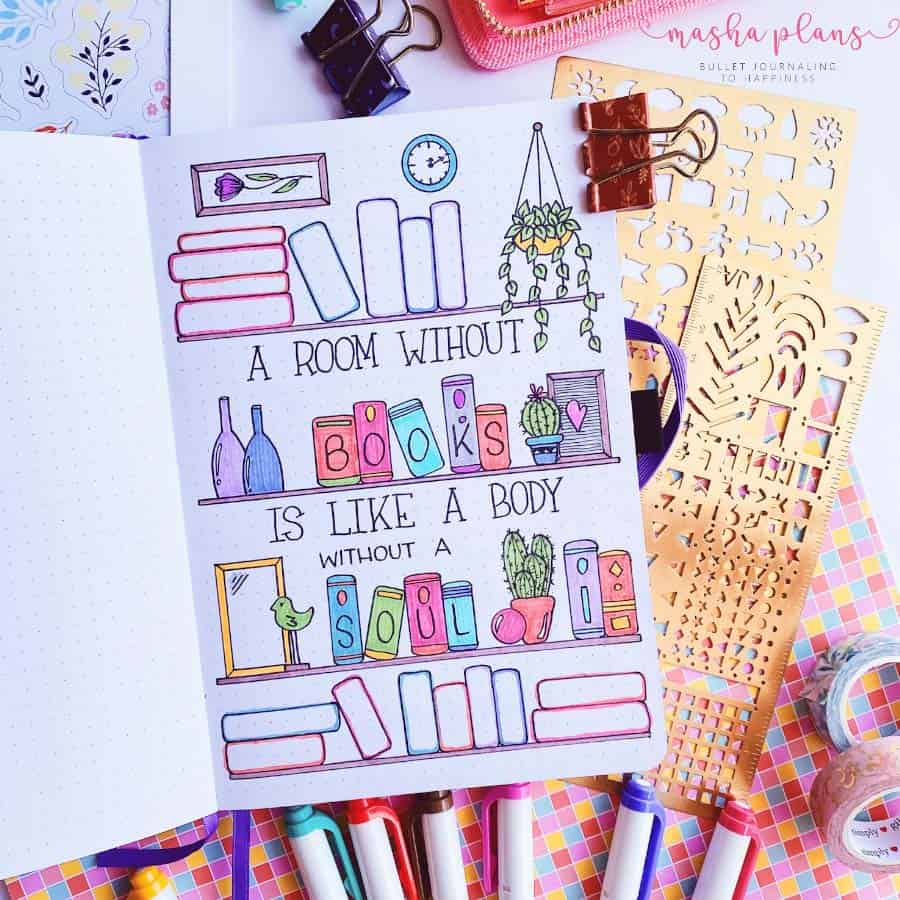 masha plans
BULLET JOURNALING
TO HAPPINESS
A ROOM WIHOUT
BOOKS
IS LIKE A BODY
WITHOUT A
SOUL
simply
simply